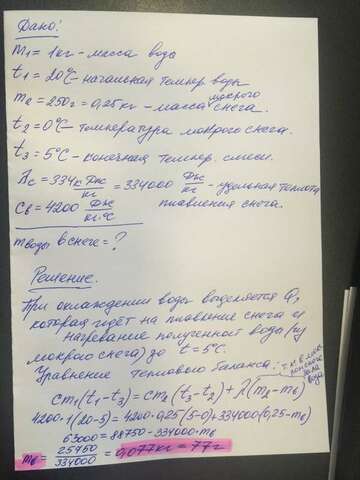 Дано:
m₁ = 1кг - масса воды
t₁ = 20°C - начальная темпер воды
m₂ = 250г = 0,25кг - масса мокрого снега.
t₂ = 0°C - температура мокрого снега.
t₃ = 5°C - конечная темпер. смеси.
λc = 334 кДж/кг = 334000 Дж/кг - удельная теплота
плавления снега.
Cв = 4200 Дж/кг·°C
m воды в снеге = ?
Решение.
При охлаждении воды выделяется Q,
которая идёт на плавление снега и
нагревание полученной воды (из
мокрого снега) до t = 5°C.
Уравнение теплового баланса:
т.к. в снеге
была
вода.
cm₁(t₁-t₃) = cm₂(t₃-t₂) + λ(m₂-mв)
4200·1(20-5) = 4200·0,25(5-0)+334000(0,25-mв)
63000 = 88750 - 334000·mв
mв = 25750/334000 = 0,077кг = 77г